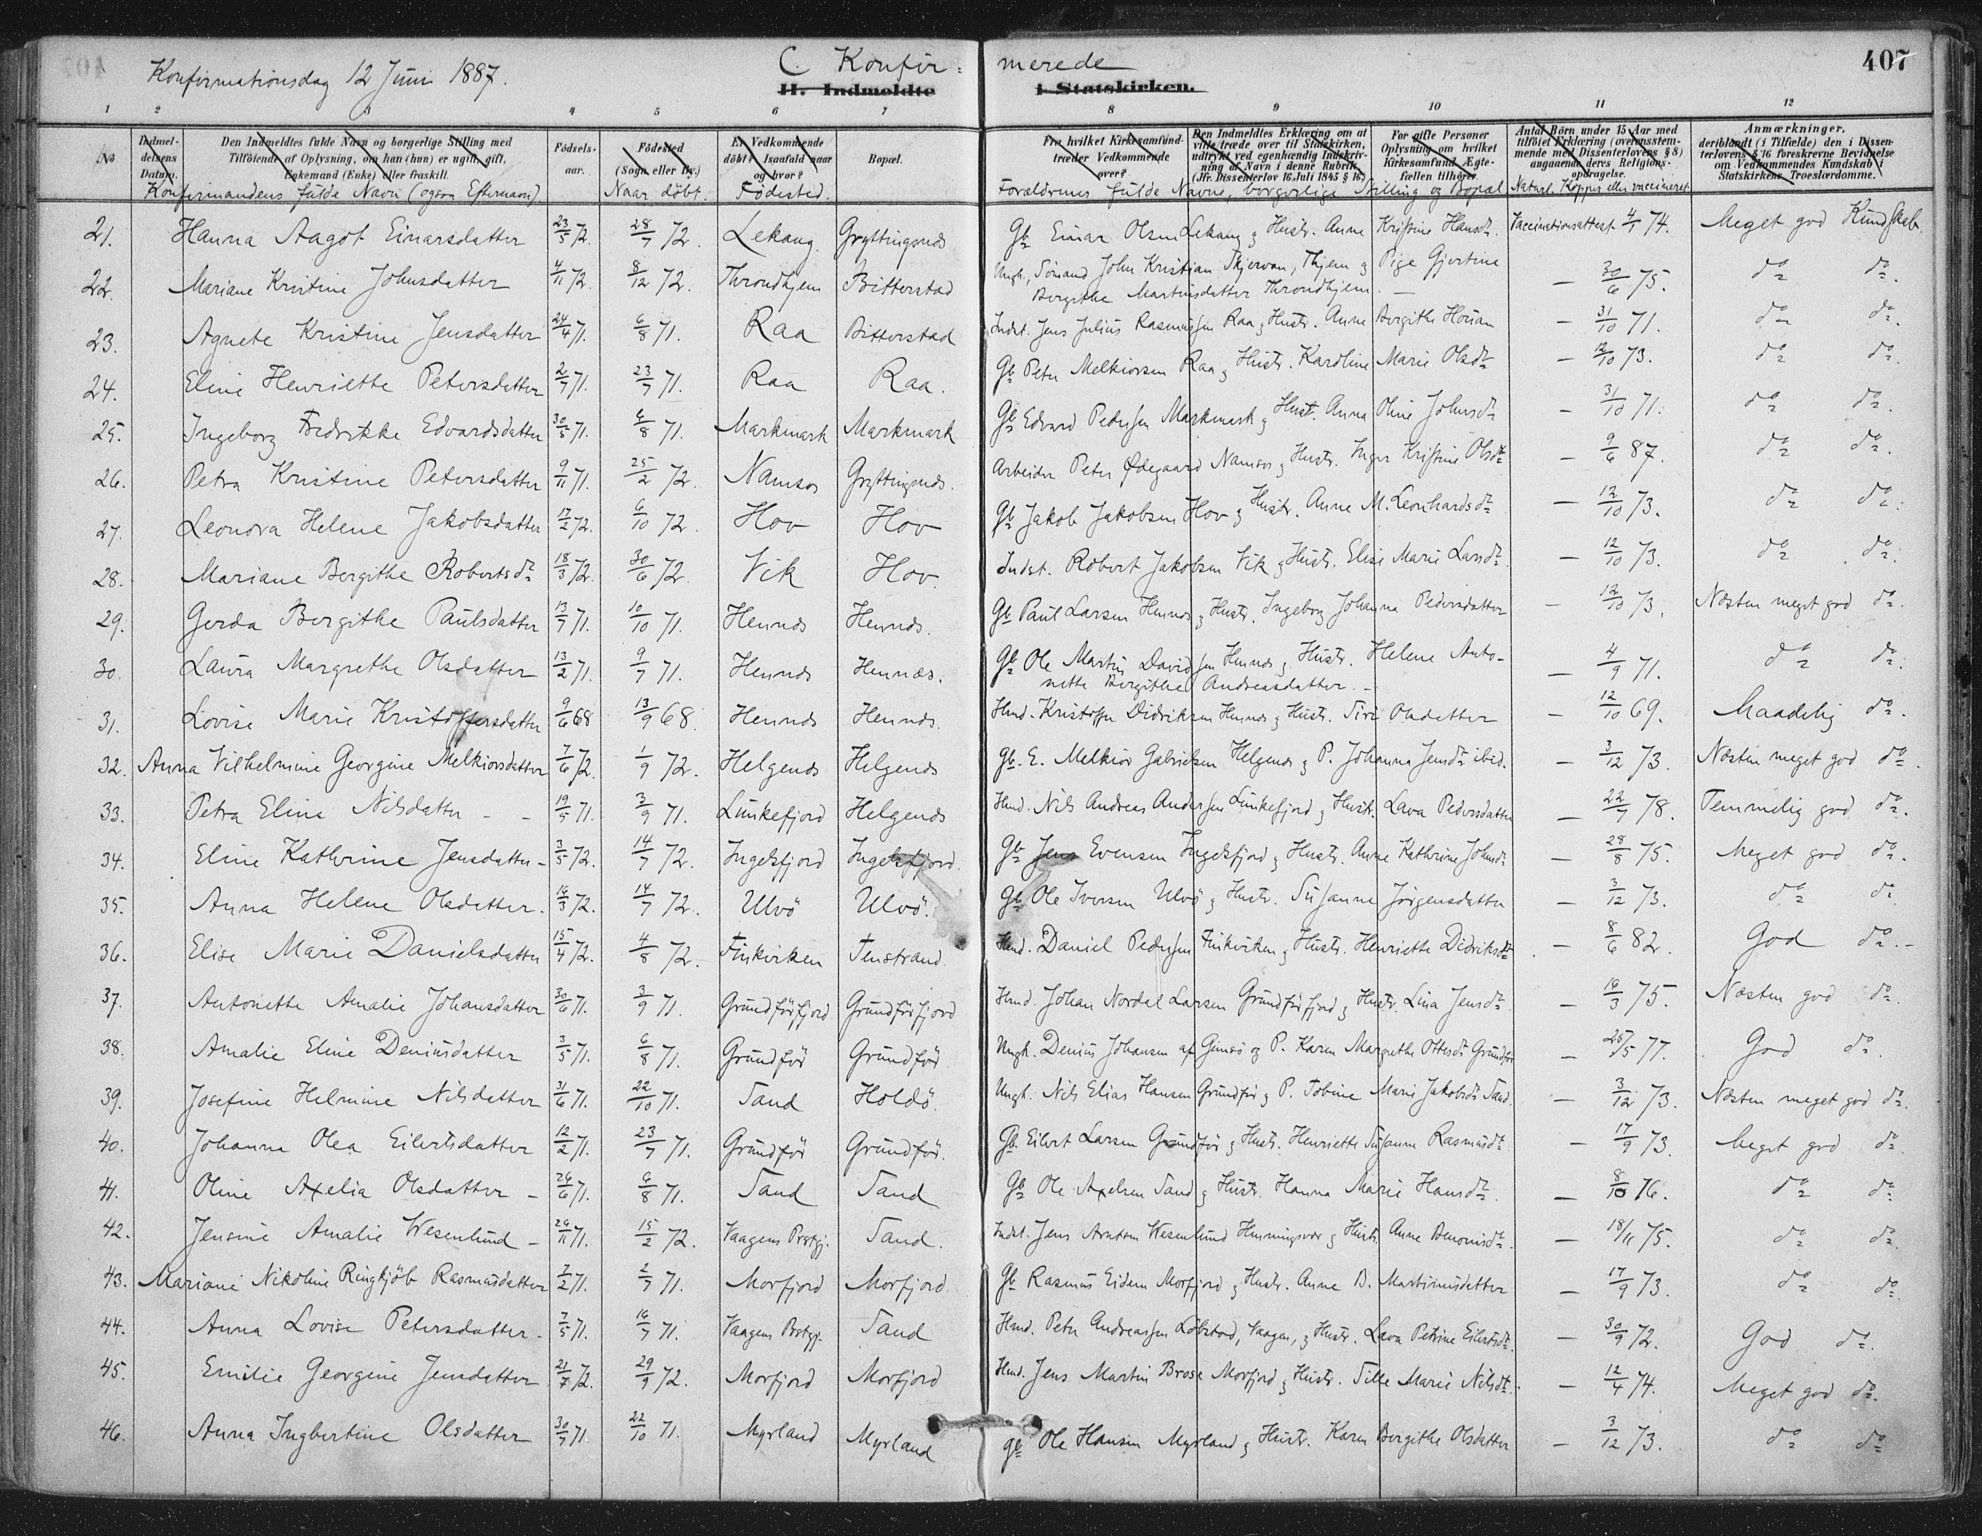 Konfirmationsdag 12 Juni 1887.
C. Konfir=
merede
407
II. Indmeldte
i Statskirken.
1 2 3 4 5 6 7 8 9 10 11 12
No
Indmel-delsens Datum.
Den Indmeldtes fulde Navn og borgerlige Stilling med Tilföiende af Oplysning, om han (hun) er ugift, gift, Enkemand (Enke) eller fraskilt.
Födsels-aar.
Födested (Sogn eller By.)
Er Vedkommende döbt? Isaafald naar og hvor?
Bopæl.
Fra hvilket Kirkesamfund træder Vedkommende over?
Den Indmeldtes Erklæring om at ville træde over til Statskirken, udtrykt ved egenhændig Indskrivning af Navn i denne Rubrik. (Jfr. Dissenterlov 16 Juli 1845 § 16)
For gifte Personer Oplysning om hvilket Kirkesamfund Ægtefællen tilhører.
Antal Börn under 15 Aar med tilföiet Erklæring (overensstemmende med Dissenterlovens § 8) angaaende deres Religions-opdragelse.
Anmærkninger, deriblandt (i Tilfælde) den i Dissenterlovens § 16 foreskrevne Bevidnelse om Vedkommendes Kundskab i Statskirkens Troeslærdomme.
Konfirmandens fulde Navn (ogsaa Efternavn) Naar döbt. Födested. Forældrenes fulde Navne, borgerlige Stilling og Bopæl Naturl. Kopper eller vaccineret
21. Hanna Aagot Einarsdatter 23/5 72. 28/7 72. Lekang Gryttingnds Gb Einar Olsen Lekang & Hustr. Anne Kristine Hansdr. Vaccinationsattest 4/1 74. Meget god Kundskab.
22. Mariane Kristine Johnsdatter 4/11 72. 8/12 72. Throndhjem Bitterstad Ungk., Sömand John Kristian Skjervan, Thjem & Pige Gjertine
Bergithe Martinsdatter Throndhjem. — — 30/6 75. do do.
23. Agnete Kristine Jensdatter 24/4 71. 6/8 71. Raa Bitterstad Indst. Jens Julius Rasmussen Raa & Hustr. Anne Bergithe — 31/10 71. do do.
24. Eline Henriette Petersdatter 2/7 71. 23/7 71. Raa Raa. Gb Peter Melkiorsen Raa & Hustr. Karoline Marie Olsdr — 12/10 73. do do.
25. Ingeborg Fredrikke Edvardsdatter 30/5 71. 6/8 71. Markmark Markmark Gb Edvard Pedersen Markmark & Hustr. Anna Oline Johnsdr — 31/10 71. do do.
26. Petra Kristine Petersdatter 9/11 71. 25/2 72. Namsos Gryttingnds. Arbeider Peter Ödegaard Namsos & Hustr. Inger Kristine Olsdr — 9/6 87. do do.
27. Leonora Helene Jakobsdatter 17/2 72. 6/10 72. Hov Hov Gb Jakob Jakobsen Hov & Hustr. Anne M. Leonhardsdr — 12/10 73. do do.
28. Mariane Bergithe Robertsdr 18/3 72. 30/6 72. Vik Hov. Indst. Robert Jakobsen Vik & Hustr. Elise Marie Larsdr. — 12/10 73. do do.
29. Gerda Bergithe Paulsdatter 13/7 71. 10/10 71. Hennds Hennds. Gb Paul Larsen Hennds & Hustr. Ingeborg Johanna Pedersdatter — 12/10 73. Næsten meget god do.
30. Laura Margrethe Olsdatter 13/2 71. 9/7 71. Hennds Hennæs. Gb Ole Martin Davidsen Hennds & Hustr. Helene Anto-
nette Bergithe Andreasdatter. — — 4/9 71. do do.
31. Lovise Marie Kristoffersdatter 9/6 68 13/9 68. Hennds Hennds. Hmd. Kristoffer Didriksen Hennds & Hustr. Siri Olsdatter — 12/10 69. Maadelig do.
32. Anna Vilhelmine Georgine Melkiorsdatter 7/6 72. 1/9 72. Helgends Helgends Gb. E. Melkior Gabrielsen Helgends & P. Johanna Jensdr ibid. — 3/12 73. Næsten meget god do.
33. Petra Eline Nilsdatter - - 19/5 71. 3/9 71. Lunkefjord Helgends Hmd. Nils Andreas Andersen Lunkefjord & Hustr. Lava Pedersdatter — 22/7 78. Temmelig god do.
34. Eline Kathrine Jensdatter - 3/5 72. 14/7 72. Ingelsfjord Ingelsfjord. Gb Jens Evensen Ingelsfjord & Hustr. Anne Kathrine Johnsdr — 28/8 75. Meget god do.
35. Anna Helene Olsdatter. 16/3 72. 14/7 72. Ulvö Ulvö. Gb Ole Iversen Ulvö & Hustr. Susanne Jörgensdatter — 3/12 73. do do.
36. Elise Marie Danielsdatter 15/4 72. 4/8 72. Finkviken Fenstrand. Hmd. Daniel Pedersen Finkviken & Hustr. Henriette Didriksdr — 8/6 82. God do.
37. Antonette Amalie Johansdatter 30/6 71. 3/9 71. Grundförfjord Grundförfjord Hmd. Johan Nordal Larsen Grundförfjord & Hustr. Lina Jensdr — 16/3 75. Næsten god do.
38. Amalie Eline Deniusdatter 3/5 71. 6/8 71. Grundför Grundför. Ungk. Denius Johansen af Gimsö og P. Karen Margrethe Ottesdr Grundför — 25/5 77. God do.
39. Josefine Helmine Nilsdatter 31/6 71. 22/10 71. Sand Holdö. Ungk. Nils Elias Hansen Grundför & P. Tobine Marie Jakobsdr Sand. — 3/12 73. Næsten meget god do.
40. Johanna Olea Eilertsdatter 12/2 71. 23/7 71. Grundför Grundför. Gb Eilert Larsen Grundför & Hustr. Henriette Susanne Rasmusdr. — 17/9 73. Meget god do.
41. Oline Axelia Olsdatter - 26/6 71. 6/8 71. Sand Sand Gb Ole Axelsen Sand & Hustr. Hanna Marie Hansdr. — 8/10 76. do do.
42. Jensine Amalie Wesenlund - 26/11 71. 15/2 72. Vaagens Prstgj. Sand. Indst. Jens Arntsen Wesenlund Henningsvær & Hustr. Anne Benonisdr. — 18/11 75. do do.
43. Mariane Nikoline Ringkjöb Rasmusdatter 7/2 71. 2/7 71. Morfjord Morfjord. Gb Rasmus Eidem Morfjord & Hustr. Anne B. Martinusdatter — 17/9 73. do do.
44. Anna Lovise Petersdatter - 7/5 71. 16/7 71. Vaagens Prstgj. Sand Hmd. Peter Andreassen Löbstad, Vaagen, & Hustr. Lava Petrine Eilertsdr. — 30/9 72. God do.
45. Emilie Georgine Jensdatter 21/7 72. 29/9 72. Morfjord Morfjord Hmd. Jens Martin Brose Morfjord & Hustr. Sille Marie Nilsdr. — 12/4 74. Meget god do.
46. Anna Ingbertine Olsdatter 30/7 71. 22/10 71. Myrland Myrland Gb Ole Hansen Myrland & Hustr. Karen Bergithe Olsdatter — 3/12 73. do do